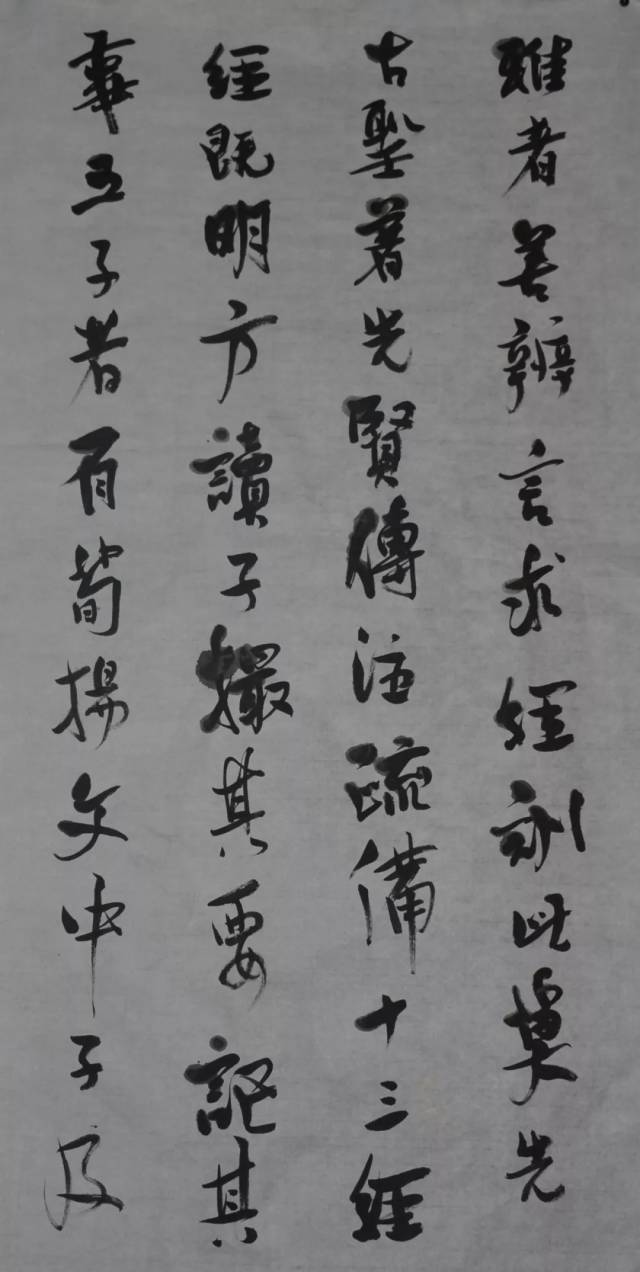 雅者善辨言求經訓此莫先
古聖著先賢傳注疏備十三經
經既明方讀子撮其要記其
事五子者有荀揚文中子及